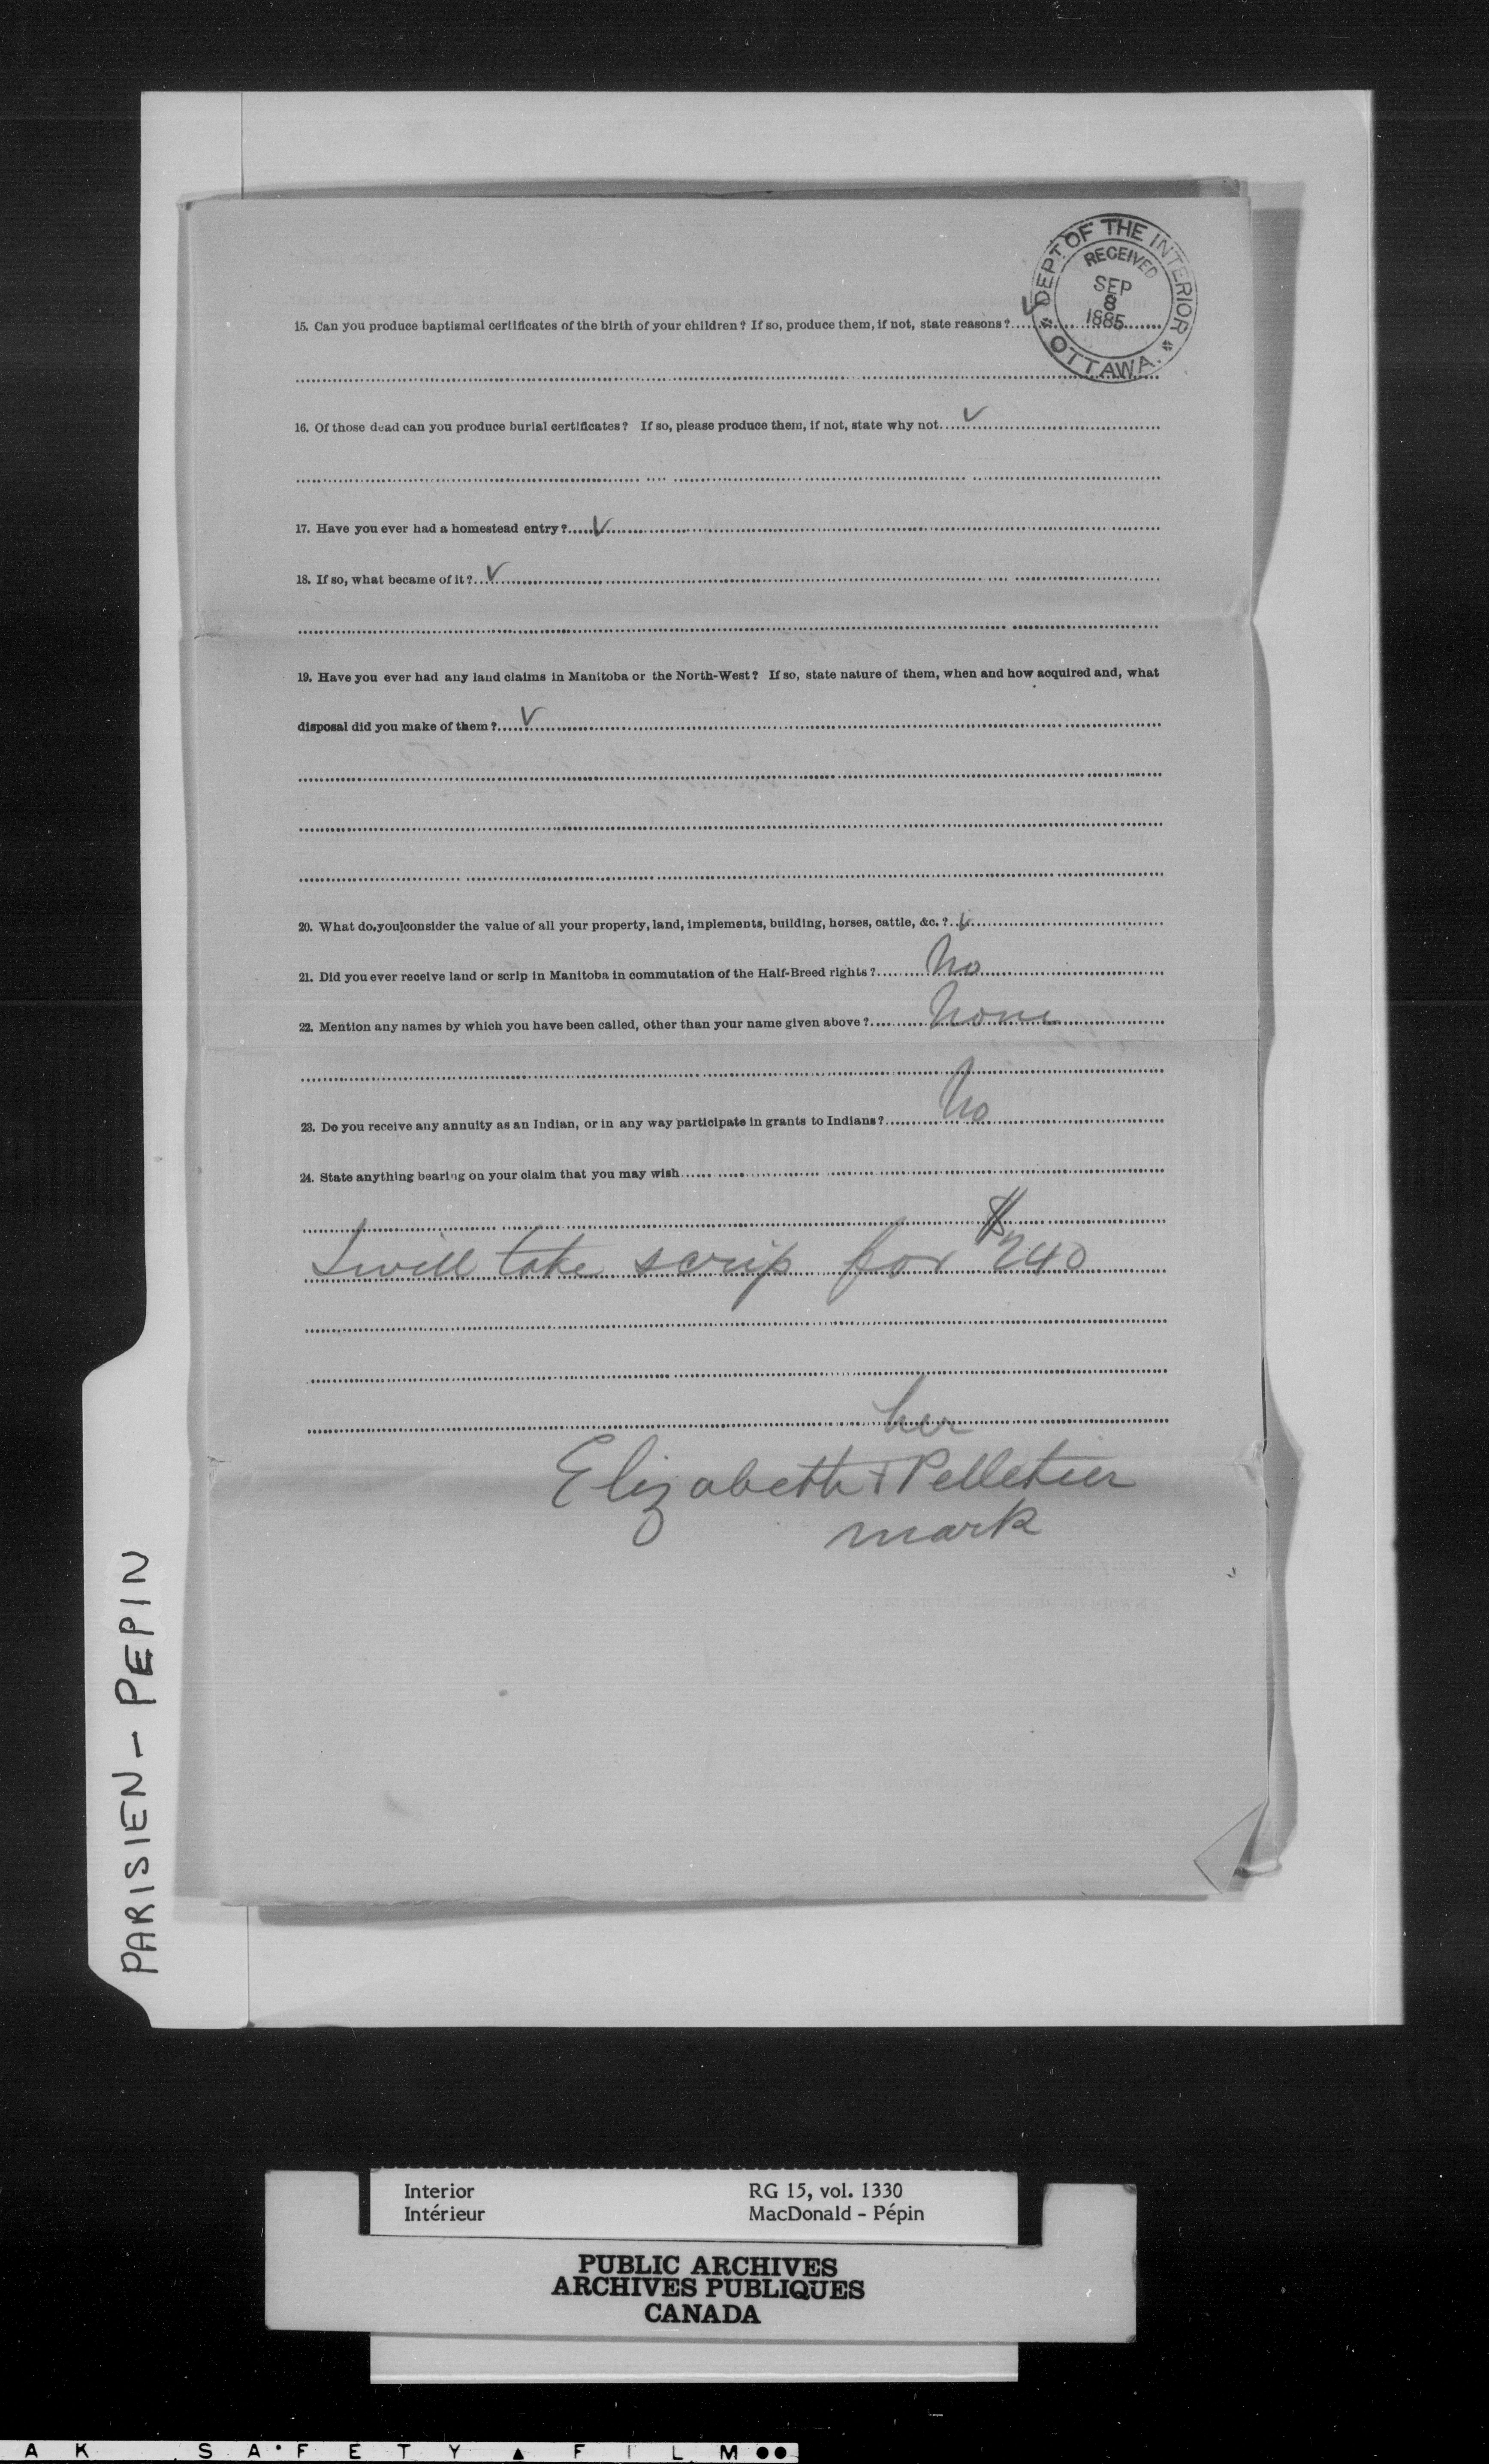 DEPT OF THE INTERIOR
RECEIVED
SEP
8
1885
OTTAWA.
15. Can you produce baptismal certificates of the birth of your children? If so, produce them, if not, state reasons? ✓
16. Of those dead can you produce burial certificates? If so, please produce them, if not, state why not ✓
17. Have you ever had a homestead entry? ✓
18. If so, what became of it? ✓
19. Have you ever had any land claims in Manitoba or the North-West? If so, state nature of them, when and how acquired and, what
disposal did you make of them? ✓
20. What do you consider the value of all your property, land, implements, building, horses, cattle, &c.? ✓
21. Did you ever receive land or scrip in Manitoba in commutation of the Half-Breed rights? No
22. Mention any names by which you have been called, other than your name given above? None
23. Do you receive any annuity as an Indian, or in any way participate in grants to Indians? No
24. State anything bearing on your claim that you may wish
I will take scrip for $240
her
Elizabeth + Pelletier
mark
PARISIEN - PEPIN
Interior RG 15, vol. 1330
Intérieur MacDonald - Pépin
PUBLIC ARCHIVES
ARCHIVES PUBLIQUES
CANADA
A K SAFETY ▲ FILM ●●